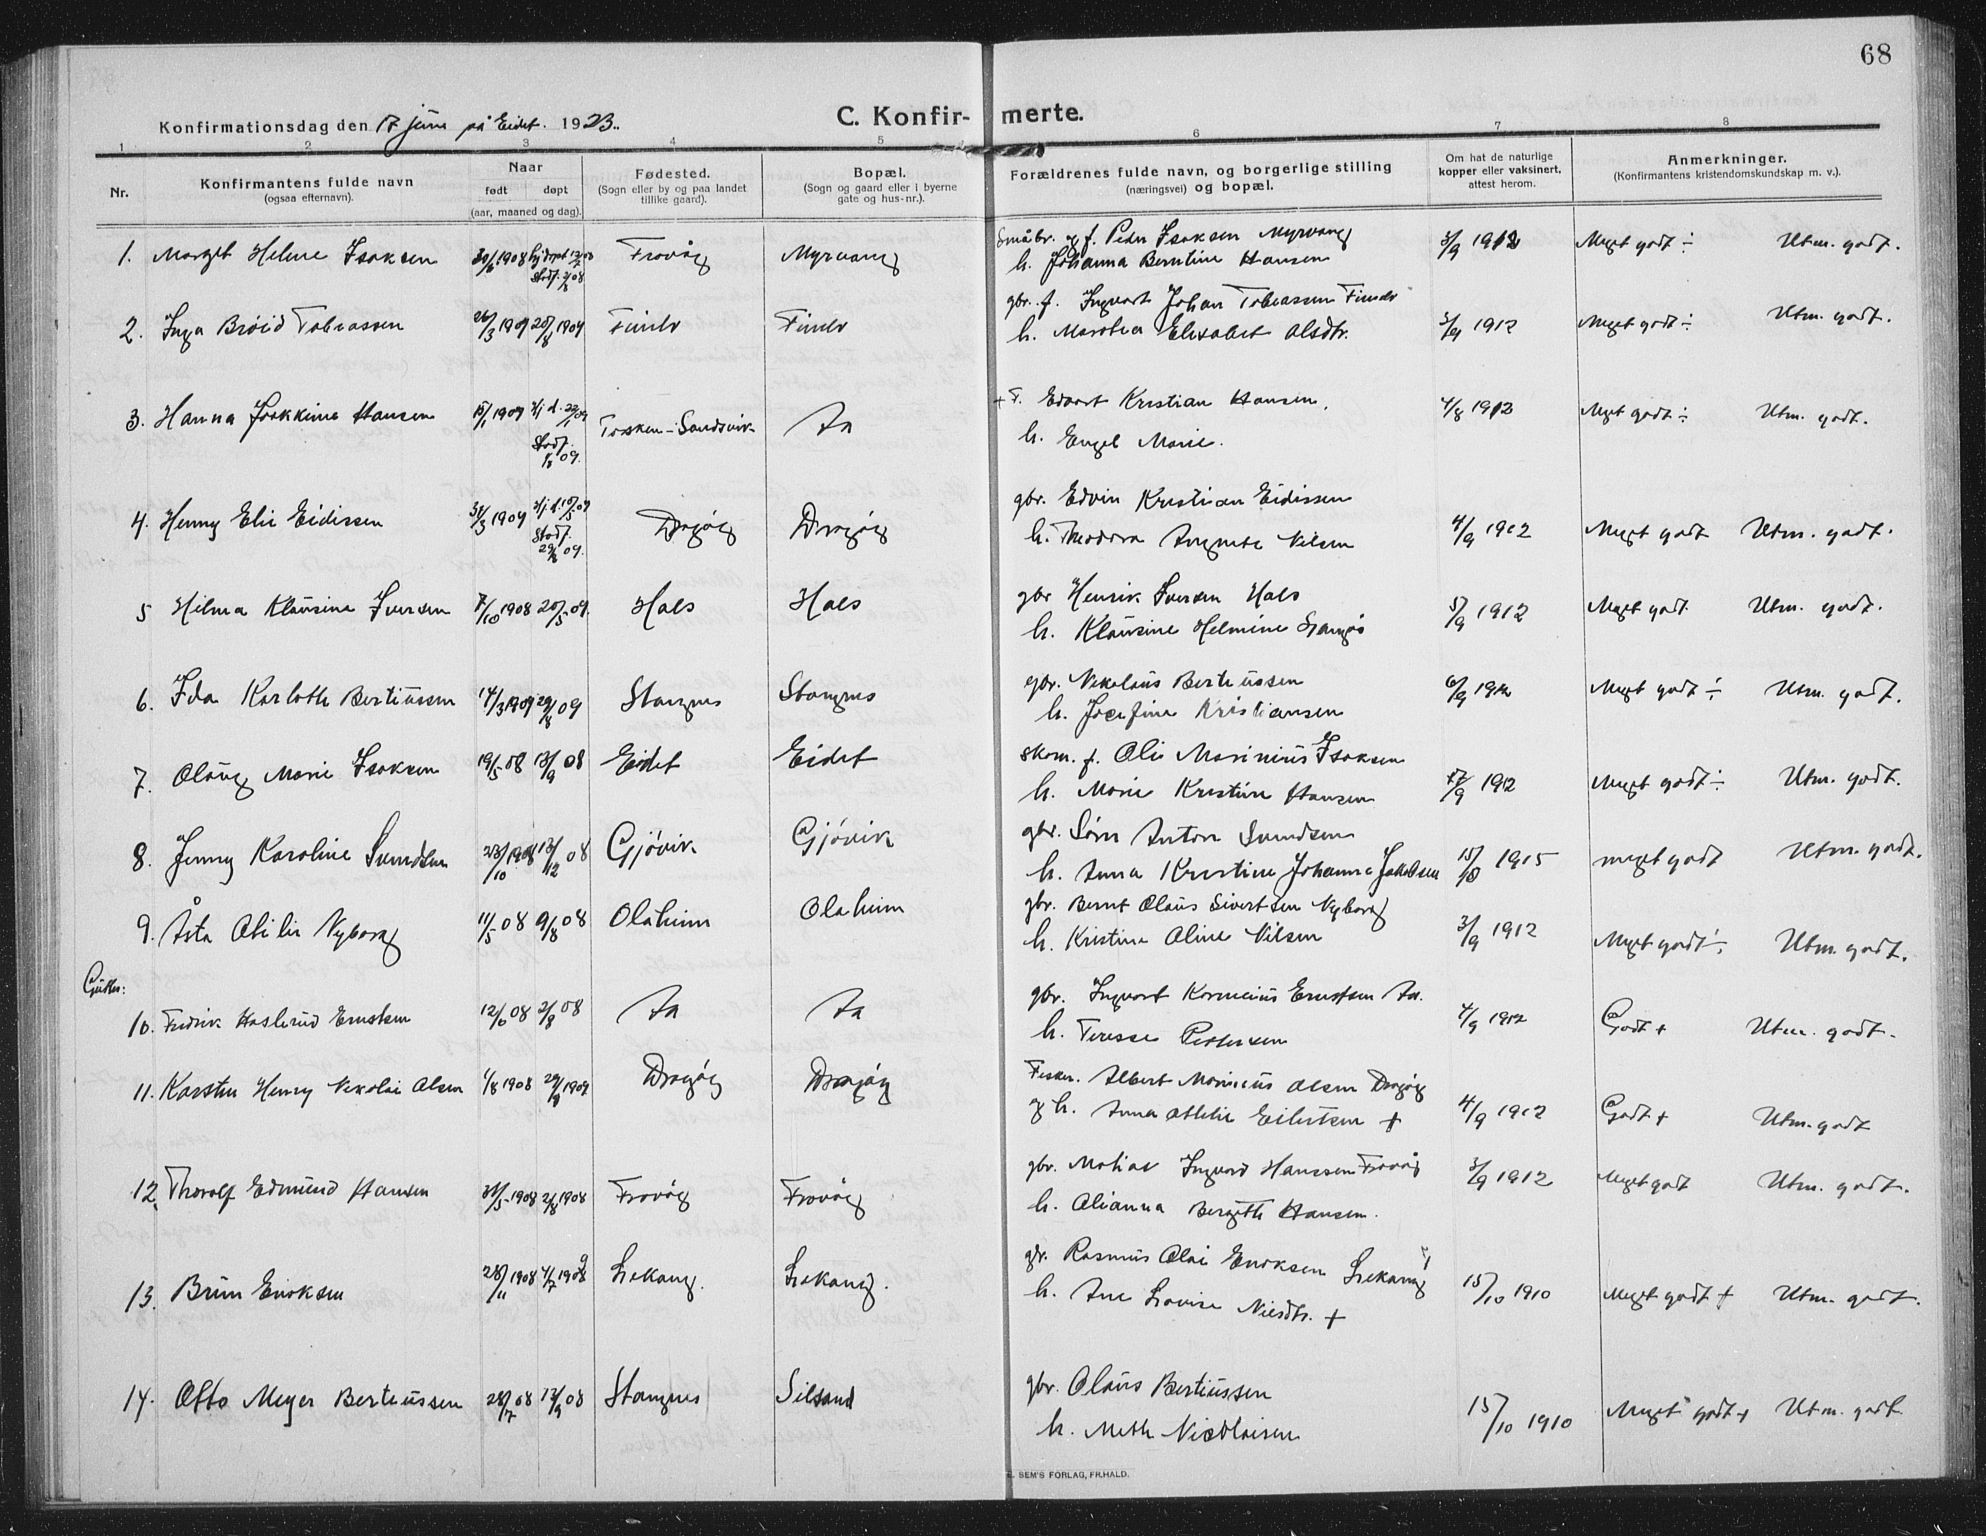 68
Konfirmationsdag den 17 juni på Eidet. 1923.
C. Konfir- merte.
1 2 3 4 5 6 7 8
Nr.
Konfirmantens fulde navn
(ogsaa efternavn).
Naar
født døpt
(aar, maaned og dag).
Fødested.
(Sogn eller by og paa landet
tillike gaard).
Bopæl.
(Sogn og gaard eller i byerne
gate og hus-nr.).
Forældrenes fulde navn, og borgerlige stilling
(næringsvei) og bopæl.
Om hat de naturlige
kopper eller vaksinert,
attest herom.
Anmerkninger.
(Konfirmantens kristendomskundskap m. v.).
1. Margit Helene Isaksen 30/6 1908 Frovåg Myrvang Småbr. og f. Peder Isaksen Myrvang 3/9 1912 Meget godt ÷ Utm. godt.
h. Johanna Berntine Hansen
gbr. f. Ingvart Johan Tobiassen
2. Inga Tobiassen 26/3 1909 20/8 1909 3/9 1912 Meget godt ÷ Utm. godt.
h. Elisabet Olsdtr.
3. Hanna Hansen 15/1 1909 Torsken - Sandsvik Aa + F. Edvart Kristian Hansen 4/8 1912 Meget godt ÷ Utm. godt.
Stadf. 1/8 09.
h. Engel Marie.
gbr. Edvin Kristian Eidissen
4. Henny Elie Eidissen 31/3 1909 Stadf. 29/8 09. 4/9 1912 Meget godt Utm. godt.
h. Theodora Nilsen
5 Hilma Klausine Iversen 7/10 1908 20/5 09. Hals Hals gbr Henrik Iversen Hals 5/9 1912 Meget godt Utm. godt.
h. Klausine Helmine
6. Ida Karloth Bertiussen 14/3 1909 29/8 09 Stangnes Stangnes gbr. Nikolaus Bertiussen 6/9 1912 Meget godt ÷ Utm. godt.
h. Josefine Kristiansen
7. Olaug Marie Isaksen 19/5 08 13/9 08 Eidet Eidet skom. f. Ole Marinius Isaksen 17/9 1912 Meget godt ÷ Utm. godt.
h. Marie Kristine Hansen
8. Jenny Karoline Svendsen 23/10 1908 13/12 08 Gjövik Gjövik gbr. Sörn Anton Svendsen 15/8 1915 meget godt Utm. godt.
h. Anna Kristine Johanna Jakobsen
gbr. Bernt Olaus Sivertsen Nyborg
9. Åsta Otilie Nyborg 11/5 08 9/8 08 Olaheim Olaheim 3/9 1912 Meget godt ÷ Utm. godt.
h. Kristine Oline Nilsen
Gutter:
10. Fredrik Haslerud Ernstsen 12/6 08 2/8 08 Aa Aa gbr. Ingvart Kornelius Ernstsen Aa. 4/9 1912 Godt + Utm. godt.
h. Teresse Pettersen
11. Karsten Henry Nikolai Olsen 1/8 1908 1909 Fisker. Albert Marinius Olsen 4/9 1912 Godt + Utm. godt
og h. Anna Otelie Eilertsen +
12. Thoralf Edmund Hansen 31/5 1908 2/8 1908 Frovåg Frovåg gbr. Matias Ingvard Hanssen Frovåg 3/9 1912 Meget godt Utm. godt.
h. Olianna Bergithe Hansen.
13. Brun Enoksen 28/11 1908 4/7 1909 Lekang. Lekang. gbr. Rasmus Olai Enoksen Lekang 15/10 1910 Meget godt + Utm. godt.
h. Ane Lovise Nilsdtr. +
14. Otto Meyer Bertiussen 28/7 08 12/9 08 Stangnes Silsand gbr. Olaus Bertiussen 15/10 1910 Meget godt + Utm. godt
h. Meth Nicolaisen
SEM'S FORLAG, FR.HALD.